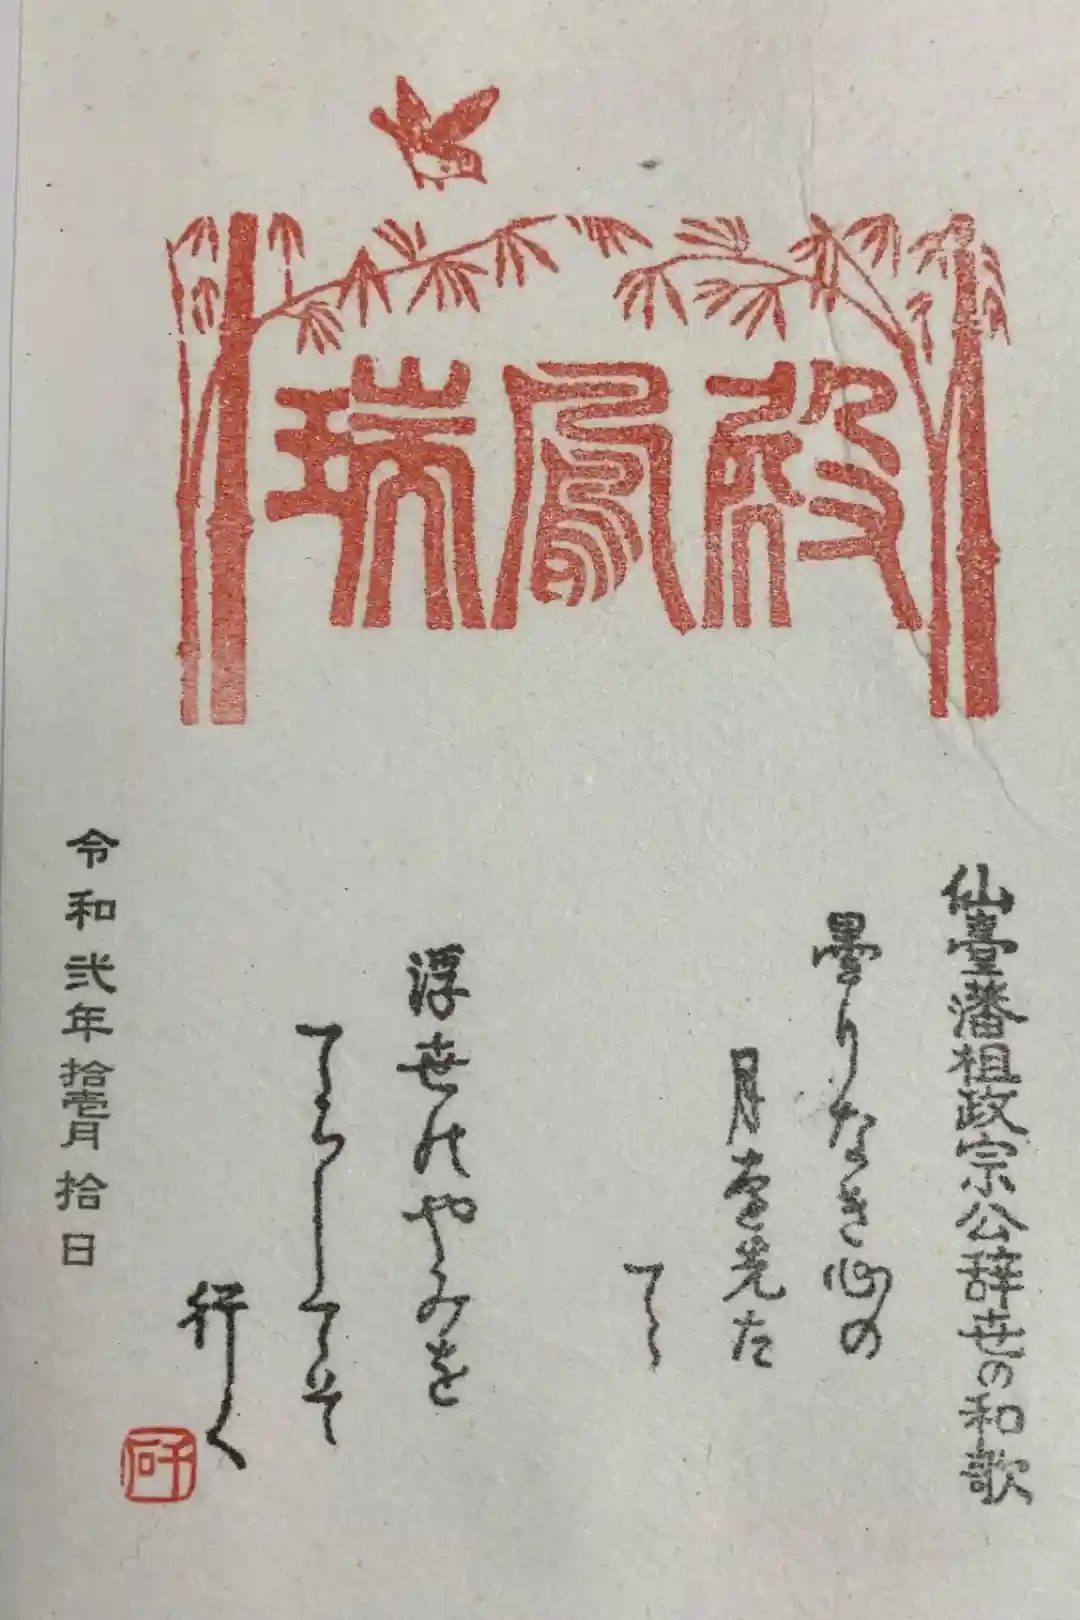 瑞鳳殿
仙臺藩祖政宗公辞世の和歌
曇りなき心の
月を先た
てゝ
浮世のやみを
てらしてそ
行く
令和弐年拾壱月拾日